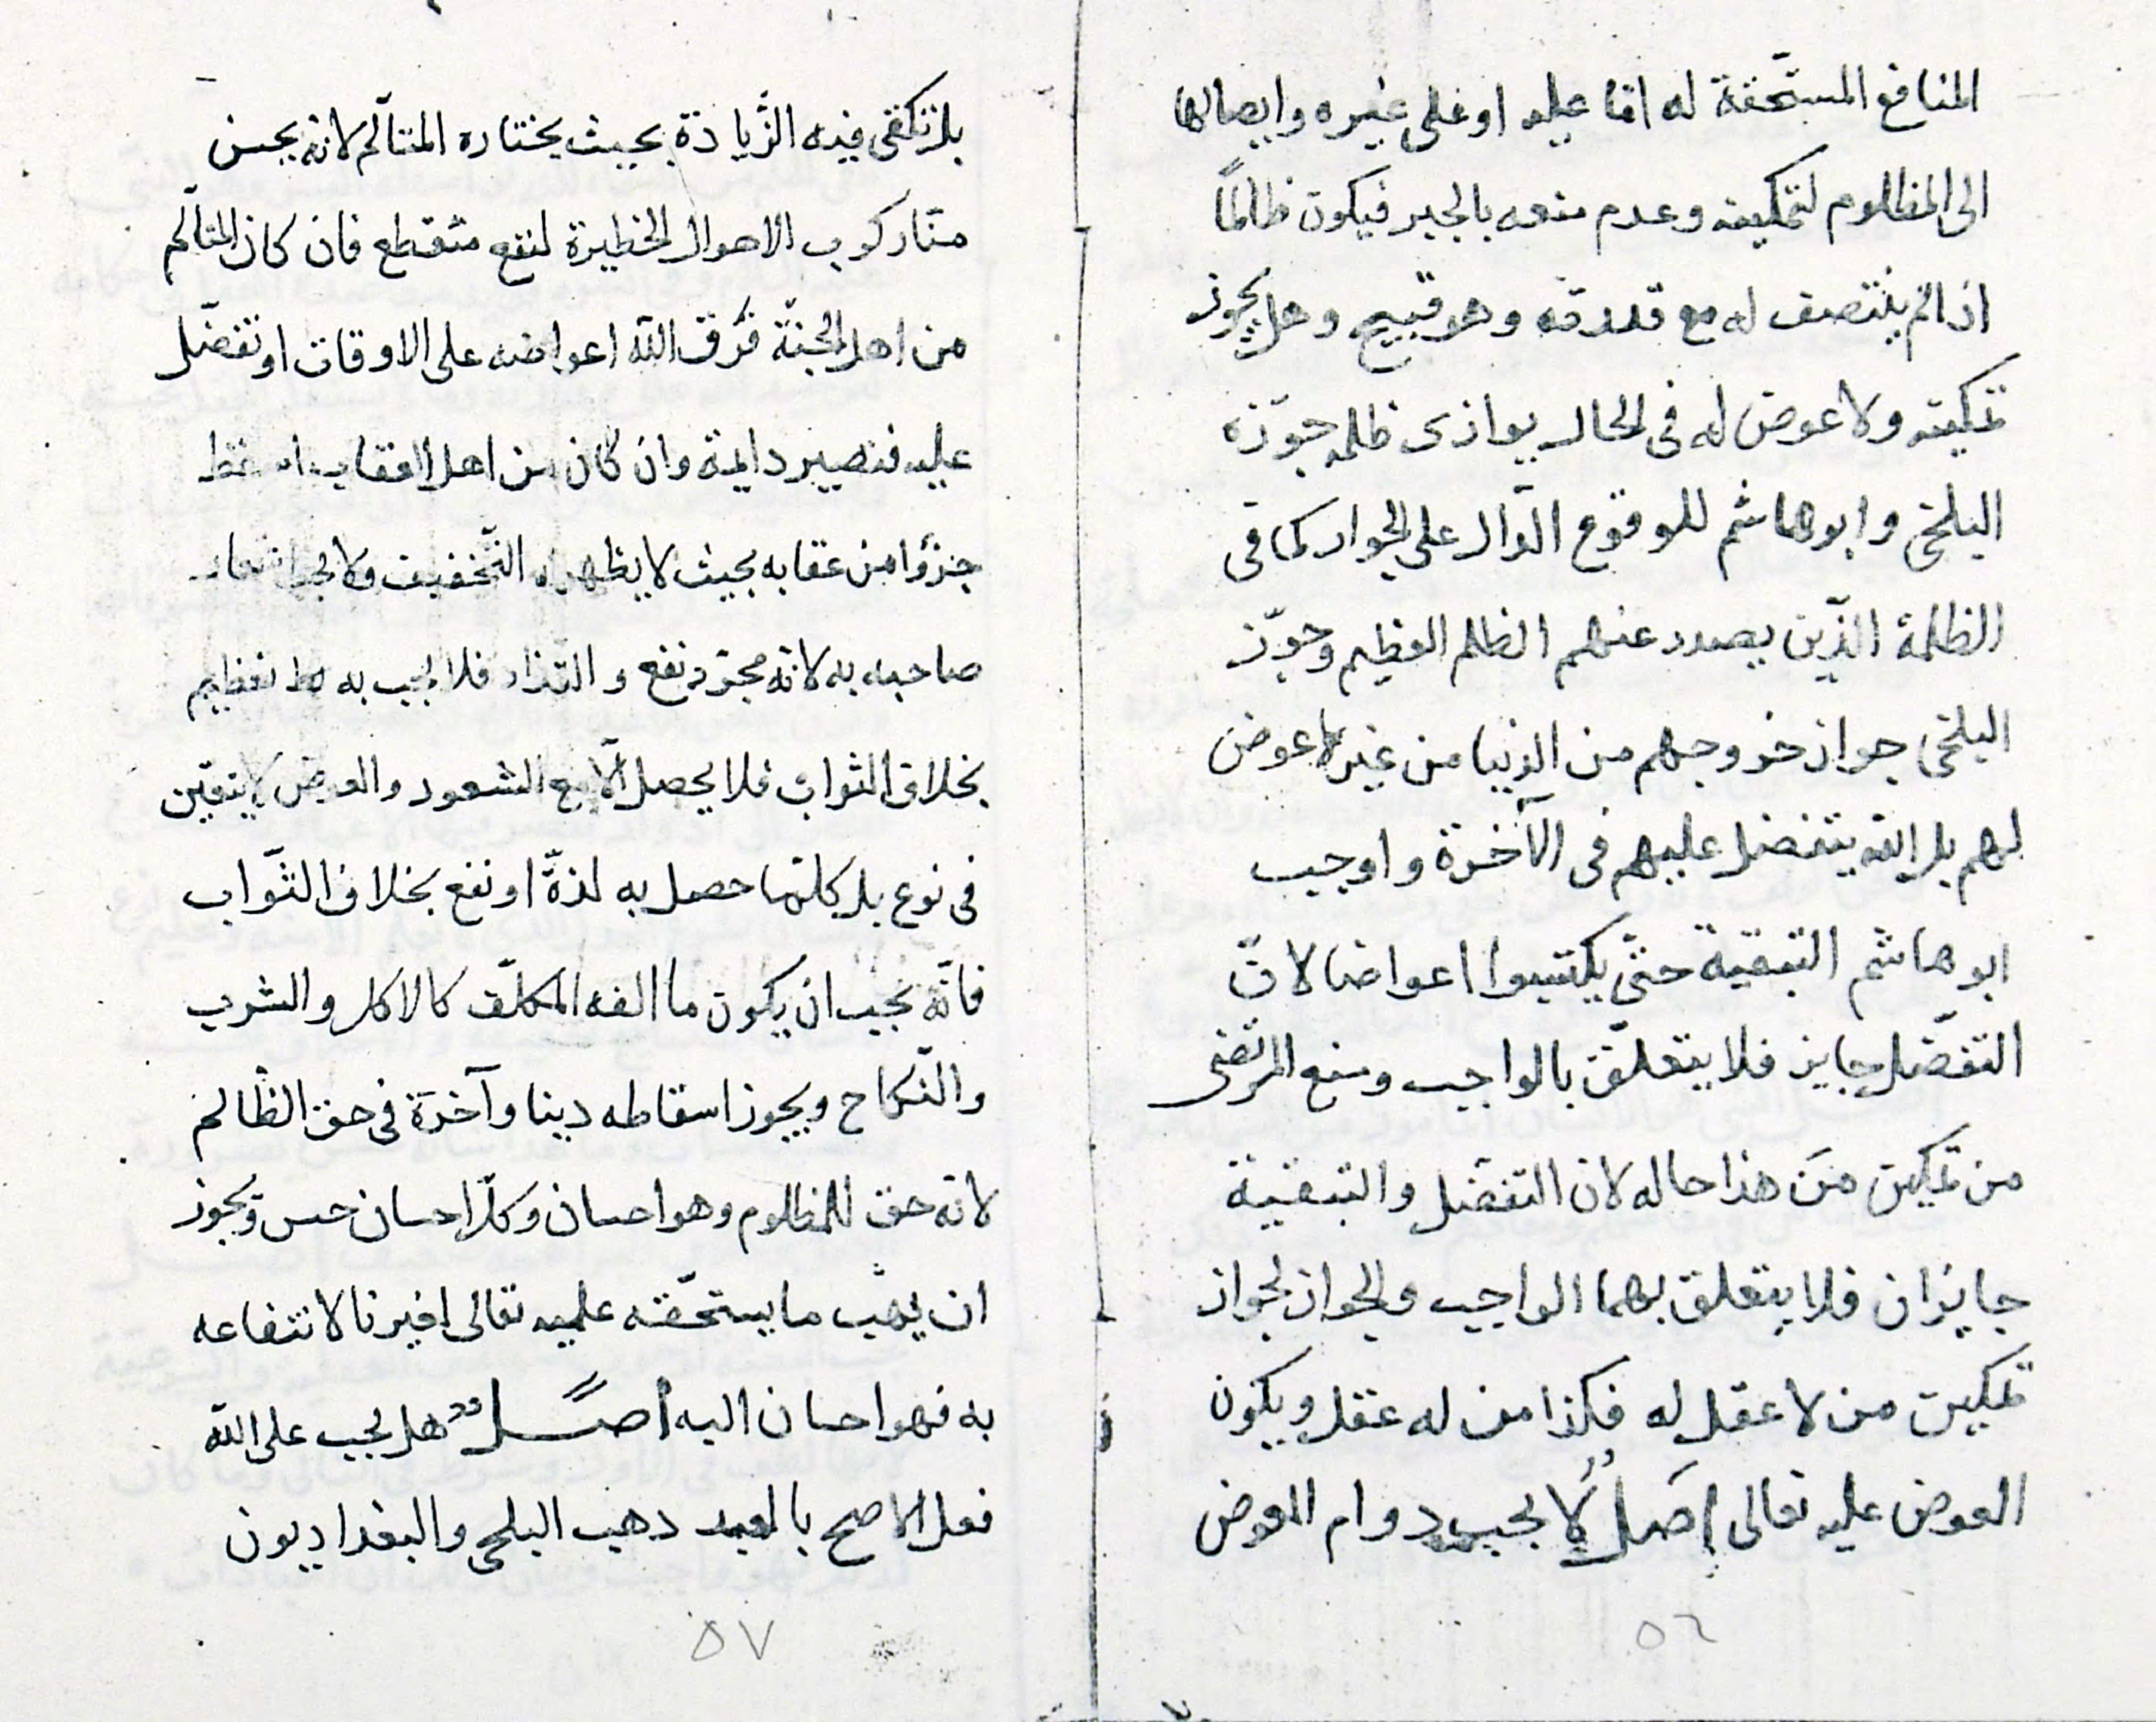 المنافع المستحّقة له امّا عليه او على غيره وايصالها
الى المظلوم لتمكينه وعدم منعه بالجبر فيكون ظالمًا
اذا لم ينتصف له مع قدرته وهو قبيح وهل يجوز
تمكينه ولا عوض له فى الحال يوازى ظلمه جوّزه
البلخى وابوهاشم للوقوع الدّال على الجواز كما فى
الظلمة الذّين يصدر عنهم الظلم العظيم وجوّز
البلخى جواز خروجهم من الدنيا من غير عوض
لهم بل الله يتفضل عليهم فى الآخرة واوجب
ابو هاشم التبقية حتّى يكتسبوا اعواضا لانّ
التفضّل جايز فلا يتعلّق بالواجب ومنع المرتضى
من تمكين مَن هذا حاله لان التفضّل والتبقية
جايزان فلا يتعلق بهما الواجب والجواز لجواز
تمكين من لا عقل له فكذا من له عقل ويكون
العوض عليه تعالى اصل لا يجب دوام العوض
٥٦
بل تكفى فيه الزّيادة بحيث يختاره المتألّم لانه يحسن
منّا ركوب الاحوال الخطيرة لنفع منقطع فان كان المتألّم
من اهل الجنّة فرّق الله اعواضه على الاوقات او تفضّل
عليه فتصير دايمة وان كان من اهل العقاب اسقط
جزؤا من عقابه بحيث لا يظهر له التّخفيف ولا يجب اشعار
صاحبه به لانّه مجرّد نفع والتذاذ فلا يجب به تعظيم
بخلاف الثواب فلا يحصل الّا مع الشعور والعوض لا يتعيّن
فى نوع بل كلّما حصل به لذّة او نفع بخلاف الثّواب
فانّه يجب ان يكون ما الفه المكلّف كالاكل والشرب
والنّكاح ويجوز اسقاطه دينا وآخرة فى حق الظالم
لانّه حق للمظلوم وهو احسان وكلّ احسان حسن ويجوز
ان يهب ما يستحّقه عليه تعالى لغيرنا لانتفاعه
به فهو احسان اليه اصل هل يجب على الله
فعل الاصح بالعبد ذهب البلخى والبغداديون
٥٧